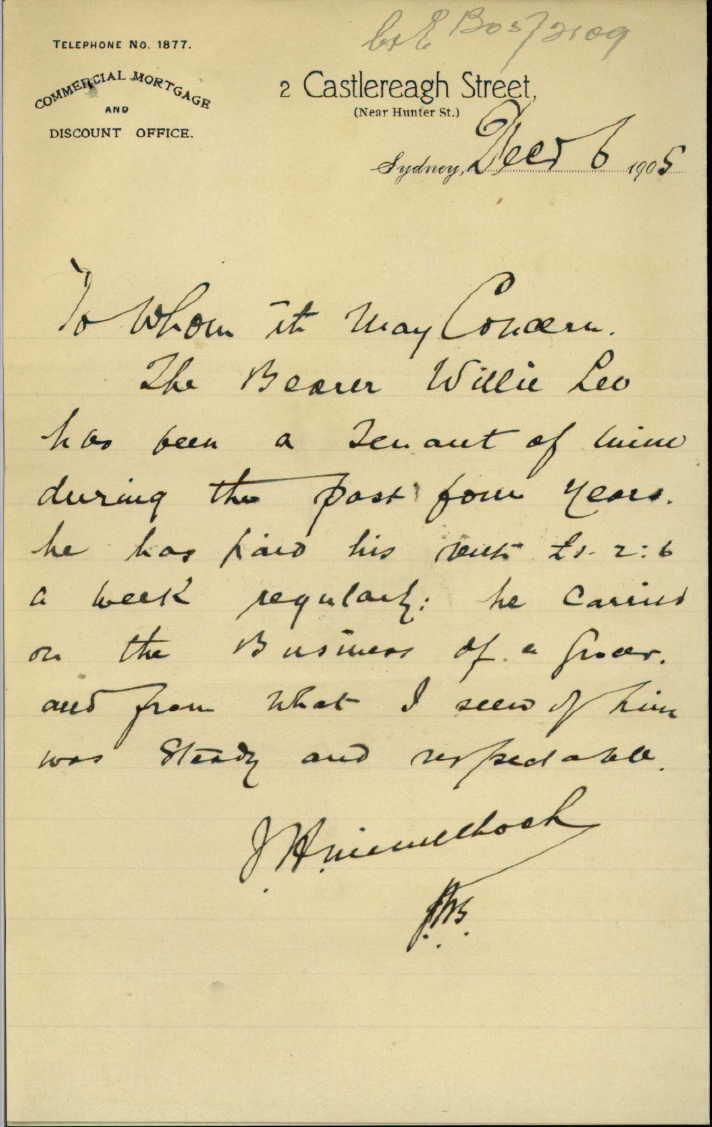 C&E B05/2109
TELEPHONE NO. 1877.
COMMERCIAL MORTGAGE
AND
DISCOUNT OFFICE.
2 Castlereagh Street,
(Near Hunter St.)
Sydney, Decr 6 1905
To Whom it May Concern.
The Bearer Willie Leo
has been a Tenant of mine
during the past four years.
he has paid his rent £1-2:6
a week regularly: he carried
on the Business of a Grocer.
and from what I seen of him
was Steady and respectable.